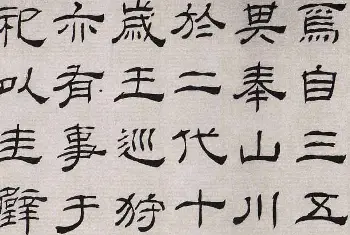 焉自三五
其奉山川
於二代十
歲王巡狩
亦有事于
祀以圭璧